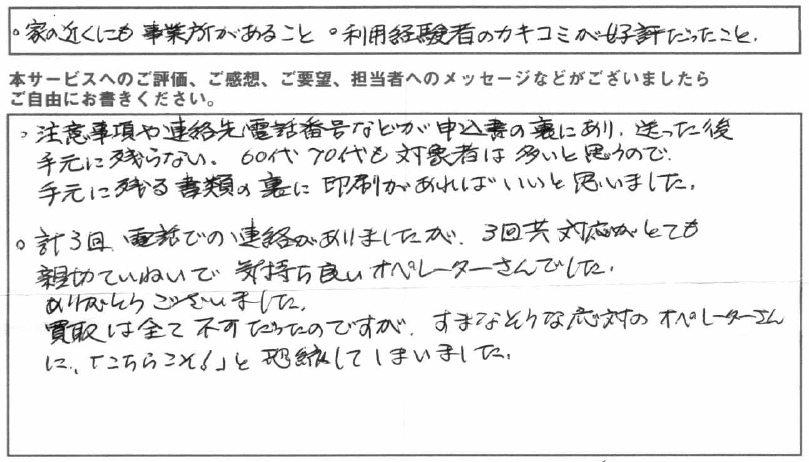 。家の近くにも事業所があること 。利用経験者のカキコミが好評だったこと。
本サービスへのご評価、ご感想、ご要望、担当者へのメッセージなどがございましたら
ご自由にお書きください。
。注意事項や連絡先電話番号などが申込書の裏にあり、送った後
手元に残らない。60代70代も対象者は多いと思うので、
手元に残る書類の裏に印刷があればいいと思いました。
。計3回、電話での連絡がありましたが、3回共対応がとても
親切ていねいで気持ち良いオペレーターさんでした。
ありがとうございました。
買取は全て不可だったのですが、すまなそうな応対のオペレーターさん
に、「こちらこそ!」と恐縮してしまいました。